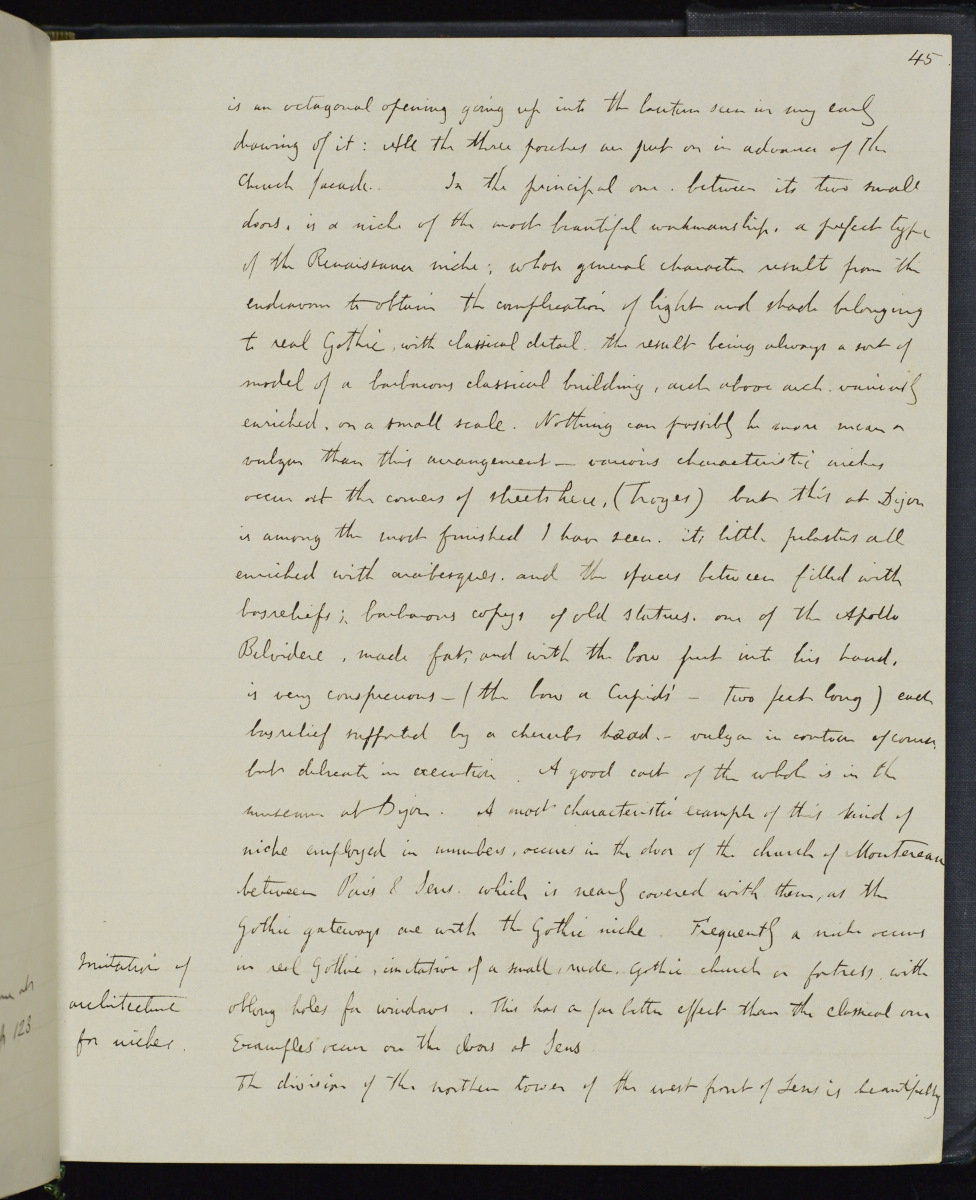 45
is an octagonal opening going up into the lantern seen in my early
drawing of it: All the three porches are put on in advance of the
church facade. In the principal one. between its two small
doors, is a niche of the most beautiful workmanship, a perfect type
of the Renaissance niche; whose general character result from the
endeavour to obtain the complication of light and shade belonging
to real Gothic, with classical detail. the result being always a sort of
model of a barbarous classical building, arch above arch. variously
enriched, on a small scale. Nothing can possibly be more mean or
vulgar than this arrangement — various characteristic niches
occur at the corners of streets here, (Troyes) but this at Dijon
is among the most finished I have seen. its little pilasters all
enriched with arabesques. and the spaces between filled with
basreliefs; barbarous copys of old statues. one of the Apollo
Belvidere, made fat, and with the bow put into his hand,
is very conspicuous — (the bow a Cupids' — two feet long) each
basrelief supported by a cherubs head. — vulgar in contour of course,
but delicate in execution. A good cast of the whole is in the
museum at Dijon. A most characteristic example of this kind of
niche employed in numbers, occurs in the door of the church of Montereau
between Paris & Sens. which is nearly covered with them, as the
Gothic gateways are with the Gothic niche. Frequently a niche occurs
Imitation of
architecture
for niches.
in real Gothic, imitative of a small, rude, Gothic church or fortress. with
oblong holes for windows. This has a far better effect than the classical one
Examples occur on the doors at Sens
The division of the northern tower of the west front of Sens is beautifully
123